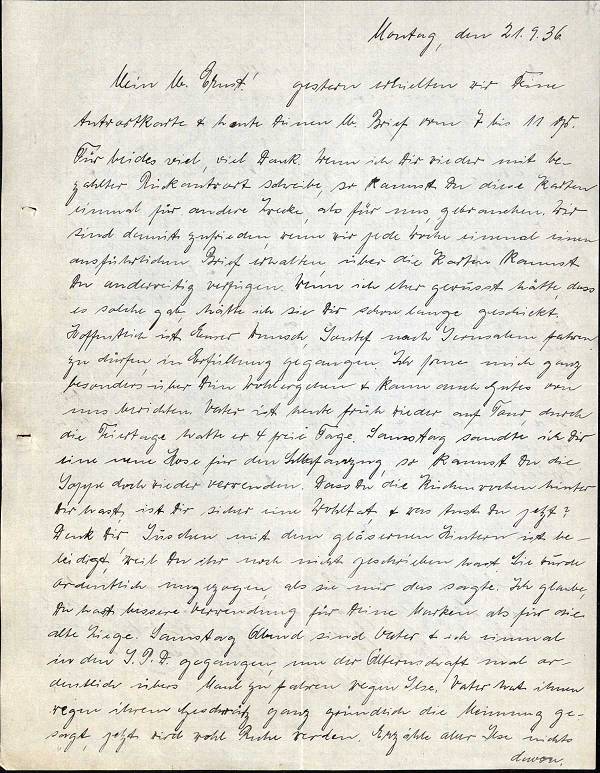 Montag, den 21.9.36
Mein lb. Ernst! gestern erhielten wir Deine
Antwortkarte & heute Deinen lb. Brief vom 7 bis 11 ds.
Für beides viel, viel Dank. Wenn ich Dir wieder mit be-
zahlter Rückantwort schreibe, so kannst Du diese Karten
einmal für andere Zwecke, als für uns gebrauchen. Wir
sind damit zufrieden, wenn wir jede Woche einmal einen
ausführlichen Brief erhalten, über die Karten kannst
Du anderweitig verfügen. Wenn ich eher gewusst hätte, dass
es solche gab hätte ich sie Dir schon lange geschickt,
Hoffentlich ist Eurer Wunsch nach Jerusalem fahren
zu dürfen, in Erfüllung gegangen. Ich freue mich ganz
besonders über Dein Wohlergehen & kann auch Gutes von
uns berichten. Vater ist heute früh wieder auf Tour, durch
die Feiertage hatte er 4 freie Tage. Samstag sandte ich Dir
eine neue Hose für den so kannst Du die
Joppe doch wieder verwenden. Dass Du die Küchenwochen hinter
Dir hast, ist Dir sicher eine Wohltat & was tust Du jetzt?
Denk Dir, Suschen mit dem gläsernen Hintern ist be-
leidigt, weil Du ihr noch nicht geschrieben hast. Sie wurde
ordentlich ungezogen, als sie mir das sagte. Ich glaube,
Du hast bessere Verwendung für Deine Marken als für die
alte Ziege. Samstag Abend sind Vater & ich einmal
in den J.P.D. gegangen, um der Elternschaft mal or-
dentlich übers Maul zu fahren wegen Ilse. Vater hat ihnen
wegen ihrem Geschwätz ganz gründlich die Meinung ge-
sagt, jetzt wird wohl Ruhe werden. Erzähle aber Ilse nichts
davon.